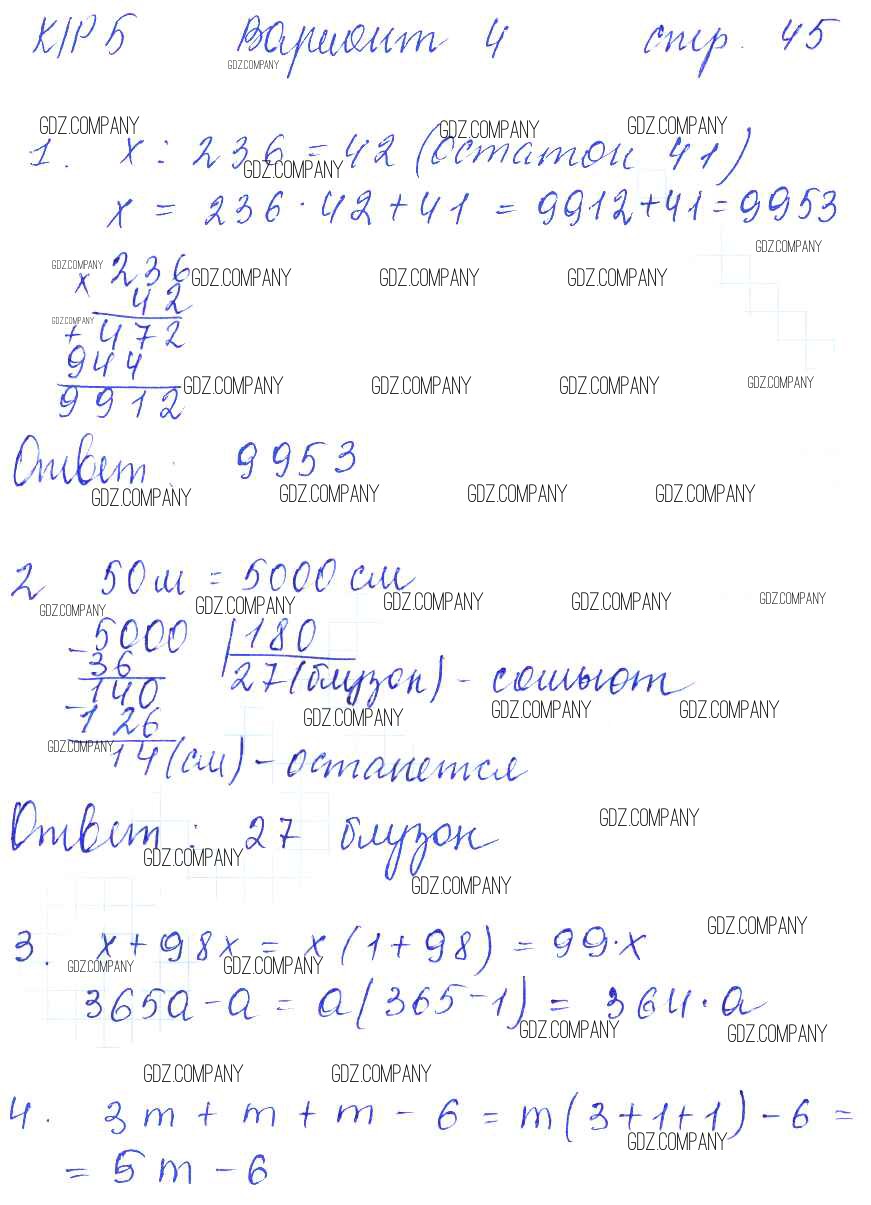 К/Р 5 Вариант 4 стр. 45
GDZ.COMPANY
GDZ.COMPANY GDZ.COMPANY GDZ.COMPANY
1. x : 236 = 42 (остаток 41)
GDZ.COMPANY
x = 236 · 42 + 41 = 9912 + 41 = 9953
GDZ.COMPANY
GDZ.COMPANY
x 236
GDZ.COMPANY GDZ.COMPANY GDZ.COMPANY
42
GDZ.COMPANY
+ 472
944
GDZ.COMPANY GDZ.COMPANY GDZ.COMPANY GDZ.COMPANY
9912
Ответ: 9953
GDZ.COMPANY GDZ.COMPANY GDZ.COMPANY GDZ.COMPANY
2 50 м = 5000 см
GDZ.COMPANY GDZ.COMPANY GDZ.COMPANY GDZ.COMPANY GDZ.COMPANY
- 5000 | 180
36 27 (блузок) - сошьют
- 140
GDZ.COMPANY GDZ.COMPANY GDZ.COMPANY
126
GDZ.COMPANY
14 (см) - останется
GDZ.COMPANY
Ответ: 27 блузок
GDZ.COMPANY
GDZ.COMPANY
GDZ.COMPANY
3. x + 98x = x (1 + 98) = 99 · x
GDZ.COMPANY GDZ.COMPANY
365a - a = a (365 - 1) = 364 · a
GDZ.COMPANY GDZ.COMPANY
GDZ.COMPANY GDZ.COMPANY
4. 3m + m + m - 6 = m (3 + 1 + 1) - 6 =
GDZ.COMPANY
= 5m - 6